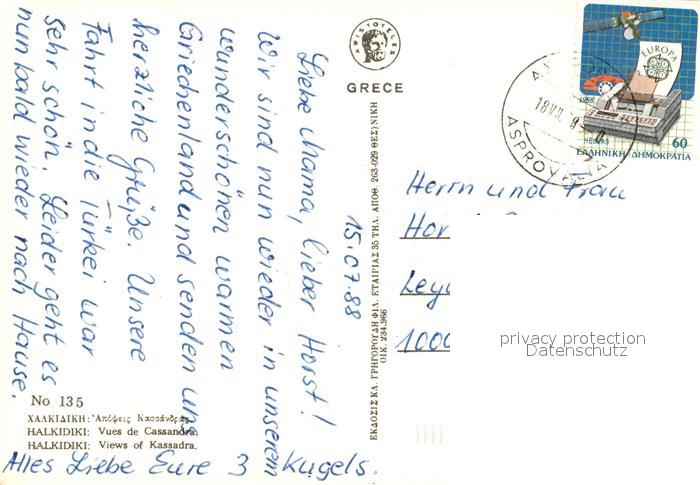 15.07.88
Liebe Mama, lieber Horst!
Wir sind nun wieder in unserem
wunderschönen warmen
Griechenland und senden uns
herzliche Grüße. Unsere
Fahrt in die Türkei war
sehr schön. Leider geht es
nun bald wieder nach Hause.
Alles Liebe Eure 3 Kugels.
No 135
ΧΑΛΚΙΔΙΚΗ: Ἀπόψεις Κασσάνδρας
HALKIDIKI: Vues de Cassandra.
HALKIDIKI: Views of Kassadra.
ARISTOTELES
GRECE
ΕΚΔΟΣΙΣ ΚΛ. ΓΡΗΓΟΡΟΥΔΗ ΦΙΛ. ΕΤΑΙΡΙΑΣ 35 ΤΗΛ. ΑΠΟΘ. 263-029 ΘΕΣ)ΝΙΚΗ
ΟΙΚ. 234.966
EUROPA
1988
HELLAS
60
ΕΛΛΗΝΙΚΗ ΔΗΜΟΚΡΑΤΙΑ
18 VII
Herrn und Frau
Hor
Ley
1000
privacy protection
Datenschutz